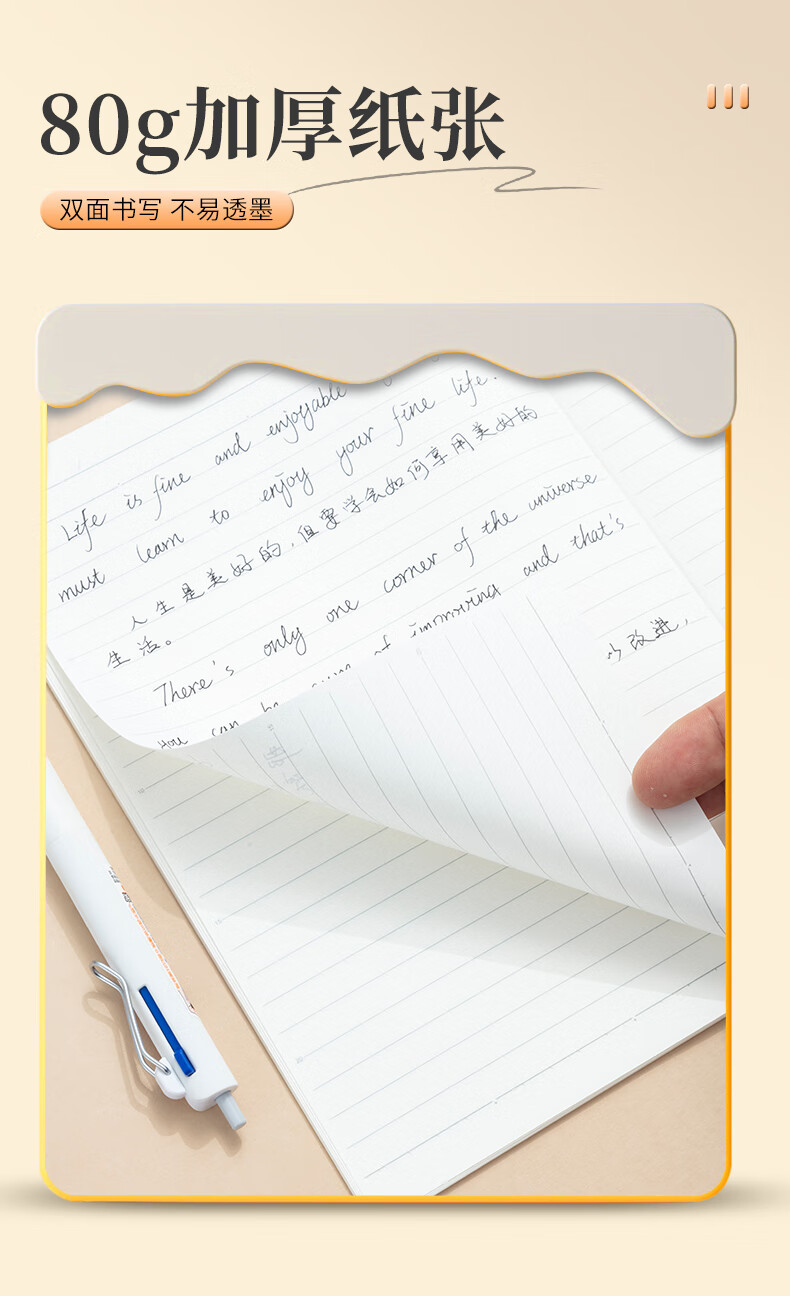 80g加厚纸张
双面书写 不易透墨
Life is fine and enjoyable
must learn to enjoy your fine life.
人生是美好的,但要学会如何享用美好的
生活。
There's only one corner of the universe
you can be of improving and that's
以改进,